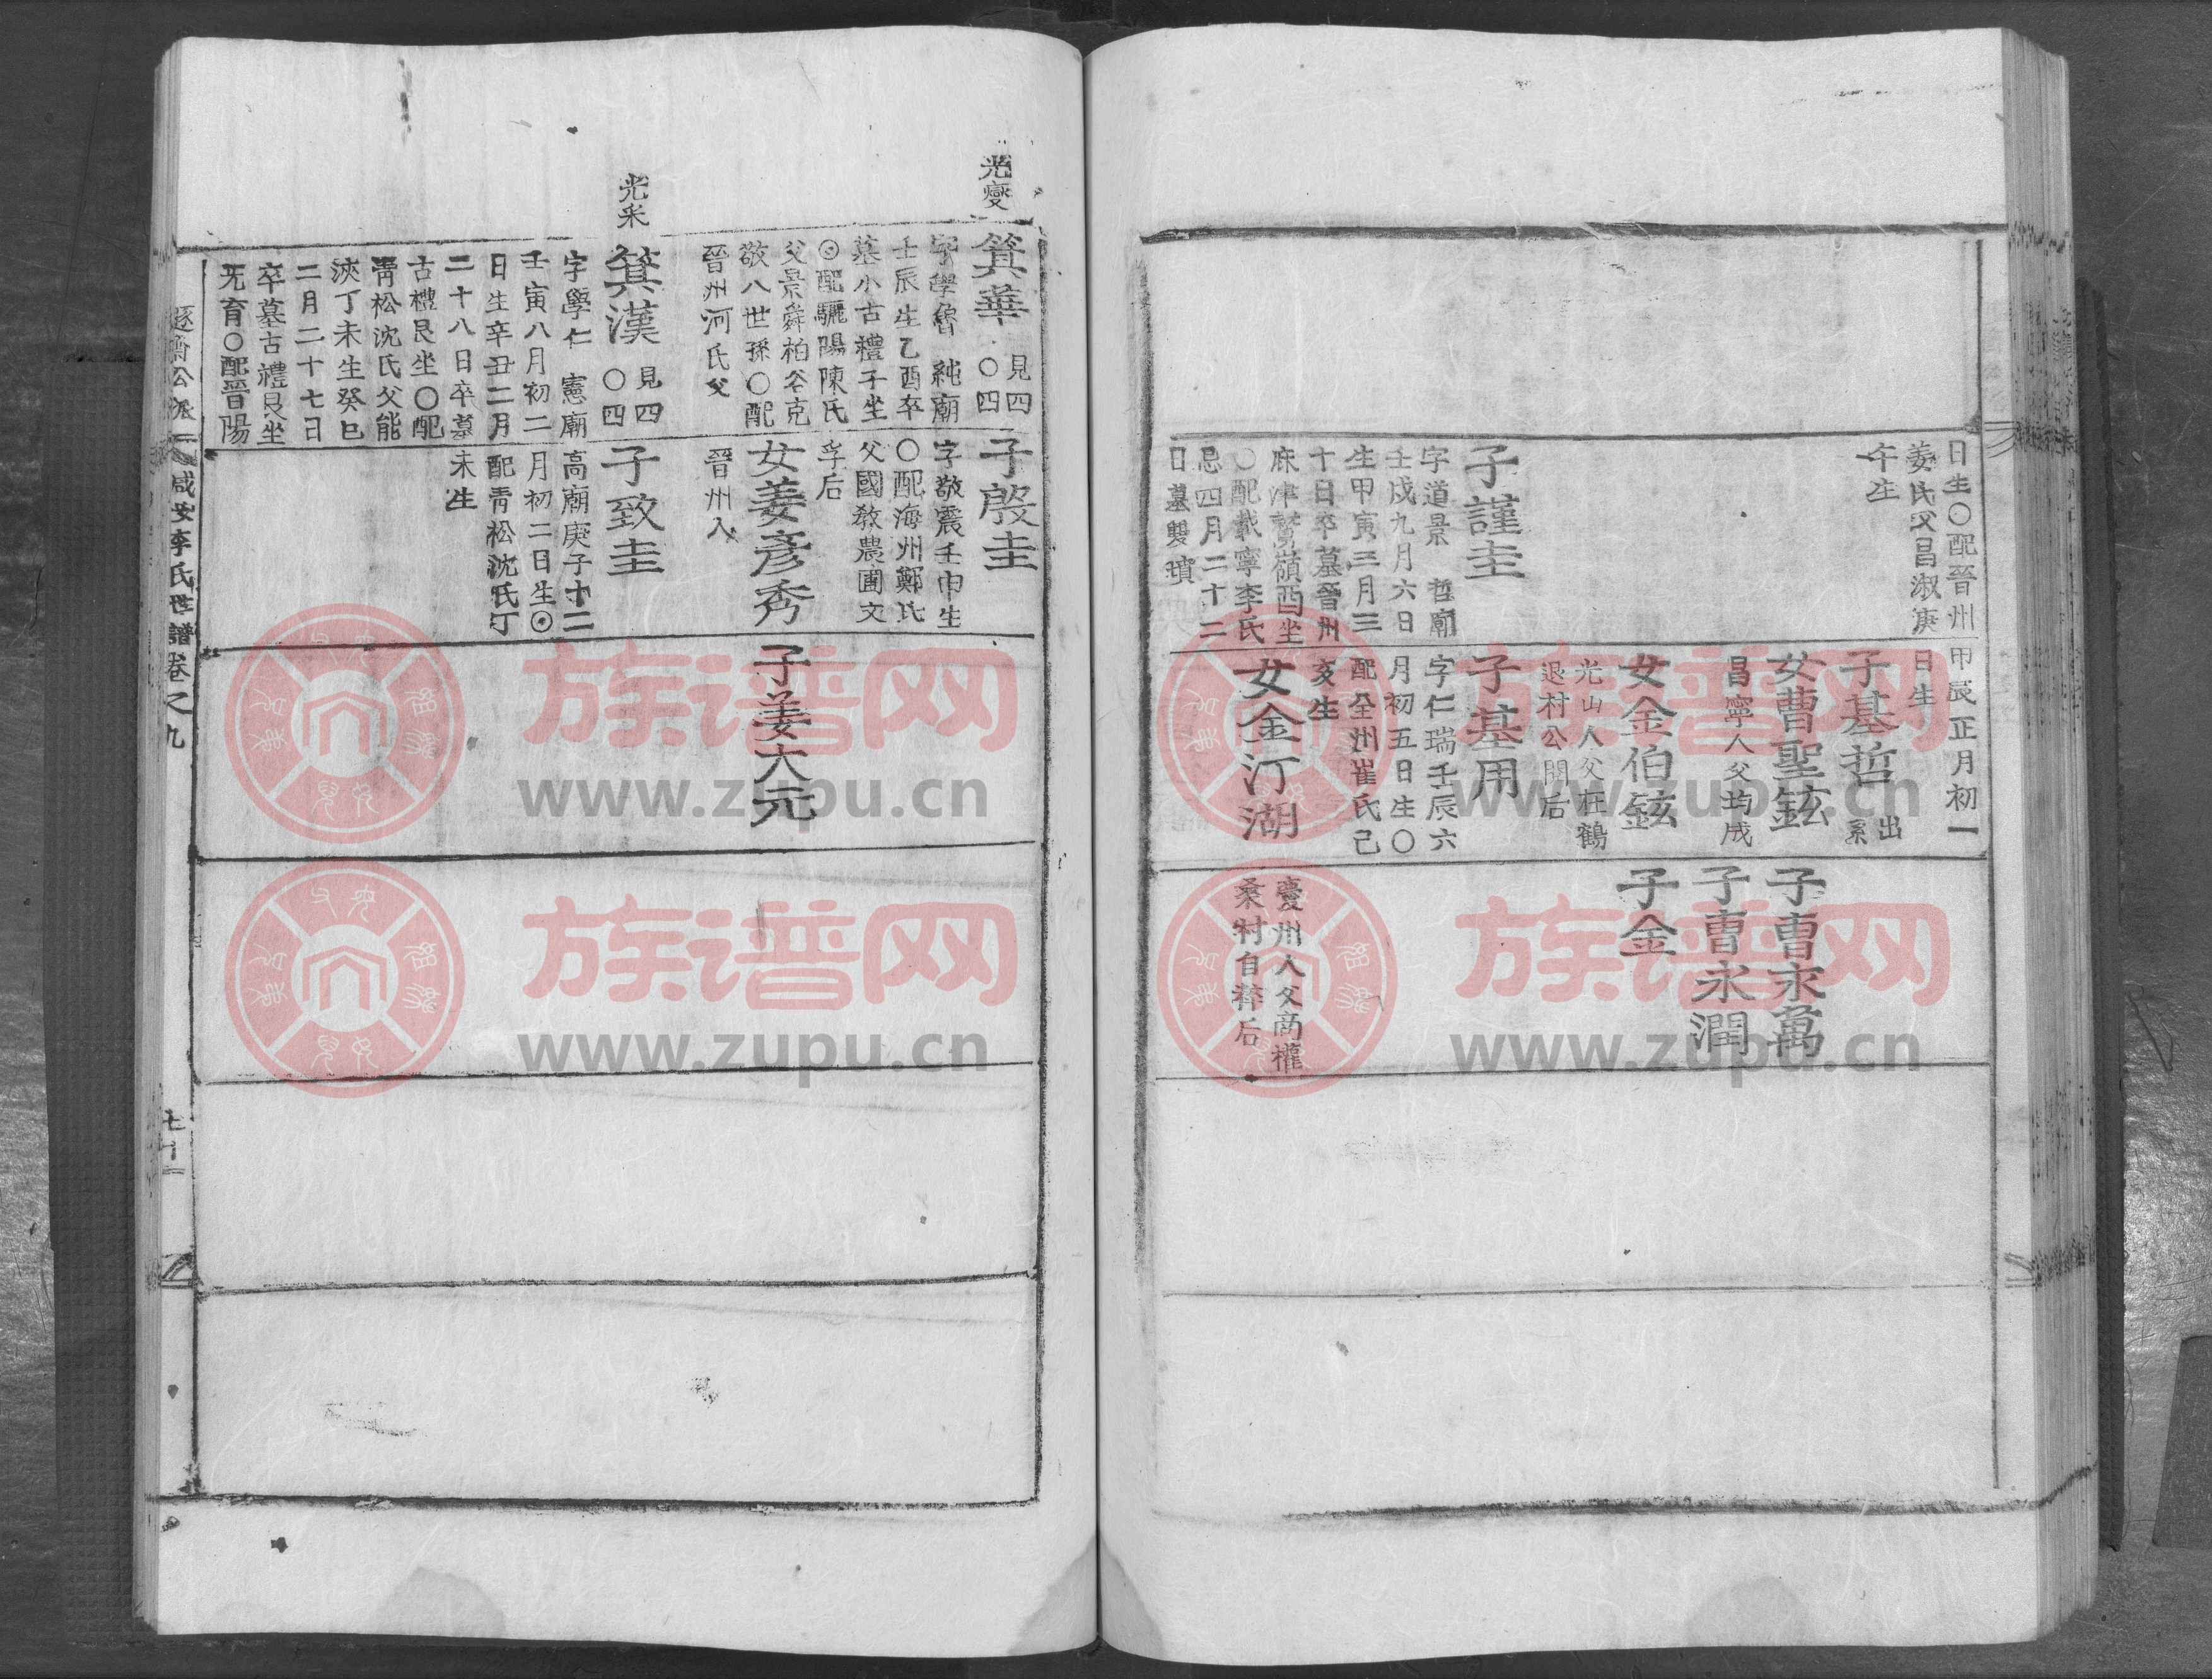 日生○配晉州
姜氏父昌淑庚
午生
子謹圭
字道景 哲廟
壬戌九月六日
生甲寅三月三
十日卒墓晉州
麻津鷲嶺酉坐
○配載寧李氏
忌四月二十二
日墓雙墳
甲辰正月初一
日生
子基哲 出系
女曹聖鉉
昌寧人父均成
女金伯鉉
光山人父在鶴
退村公閒后
子基用
字仁瑞壬辰六
月初五日生○
配全州崔氏己
亥生
女金汀湖
子曹永萬
子曹永潤
子金
慶州人父商權
桑村自粹后
光燮
箕華 見四○四
字學魯 純廟
壬辰生乙酉卒
墓小古禮子坐
⊙配驪陽陳氏
父景舜柏谷克
敬八世孫○配
晉州河氏父
光釆
箕漢 見四○四
字學仁 憲廟
壬寅八月初二
日生辛丑二月
二十八日卒墓
古禮艮坐○配
青松沈氏父能
浹丁未生癸巳
二月二十七日
卒墓古禮艮坐
无育○配晉陽
子殷圭
字敬震壬申生
○配海州鄭氏
父國教農圃文
孚后
女姜彥秀
晉州人
子致圭
高廟庚子十二
月初二日生⊙
配青松沈氏丁
未生
子姜大元
逐齋公派 咸安李氏世譜卷之九
族谱网
www.zupu.cn
族谱网
www.zupu.cn
族谱网
www.zupu.cn
族谱网
www.zupu.cn